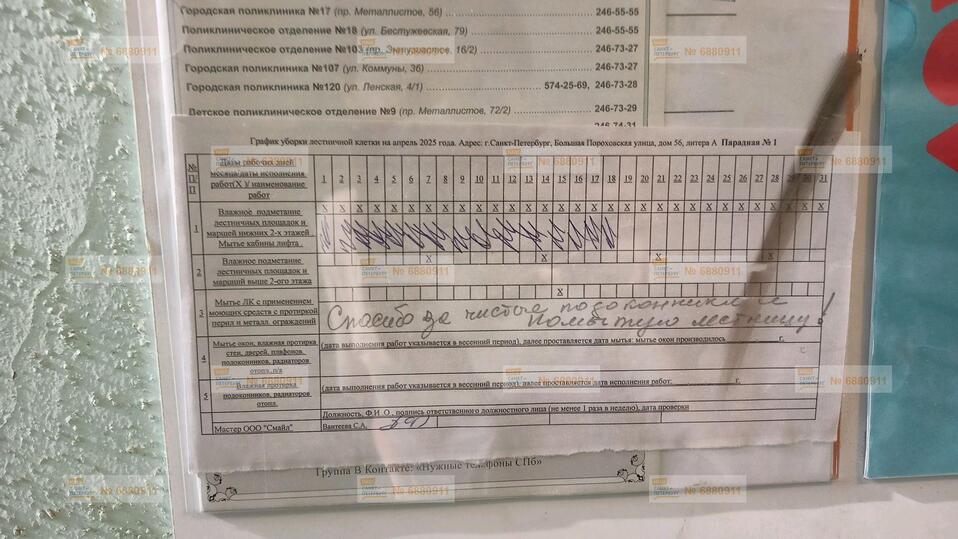 Городская поликлиника №17 (пр. Металлистов, 56) 246-55-55
Поликлиническое отделение №18 (ул. Бестужевская, 79) 246-55-55
Поликлиническое отделение №103 (пр. Энтузиастов, 16/2) 246-73-27
Городская поликлиника №107 (ул. Коммуны, 36) 246-73-27
Городская поликлиника №120 (ул. Ленская, 4/1) 574-25-69, 246-73-28
Детское поликлиническое отделение №9 (пр. Металлистов, 72/2) 246-73-29
246-74-31
График уборки лестничной клетки на апрель 2025 года. Адрес: г.Санкт-Петербург, Большая Пороховская улица, дом 56, литера А Парадная № 1
№ П/П
Даты рабочих дней месяца/даты исполнения работ(Х )/ наименование работ
1 2 3 4 5 6 7 8 9 10 11 12 13 14 15 16 17 18 19 20 21 22 23 24 25 26 27 28 29 30 31
1
Влажное подметание лестничных площадок и маршей нижних 2-х этажей Мытье кабины лифта
X X X X X X X X X X X X X X X X X X X X X X X X X X X X X X
2
Влажное подметание лестничных площадок и маршей выше 2-ого этажа
X X X X
3
Мытье ЛК с применением моющих средств с протиркой перил и металл. ограждений
X
Спасибо за чистые подоконники и
помытую лестницу!
4
Мытье окон, влажная протирка стен, дверей, плафонов, подоконников, радиаторов отопл.,п/я
(дата выполнения работ указывается в весенний период), далее проставляется дата мытья: мытье окон производилось г.
5
Влажная протирка подоконников, радиаторов отопл.
(дата выполнения работ указывается в весенний период), далее проставляется дата исполнения работ: г.
Должность, Ф.И.О., подпись ответственного должностного лица (не менее 1 раза в неделю), дата проверки
Мастер ООО "Смайл" Вантеева С.А.
Группа В Контакте: «Нужные телефоны СПб»
НАШ САНКТ-ПЕТЕРБУРГ № 6880911